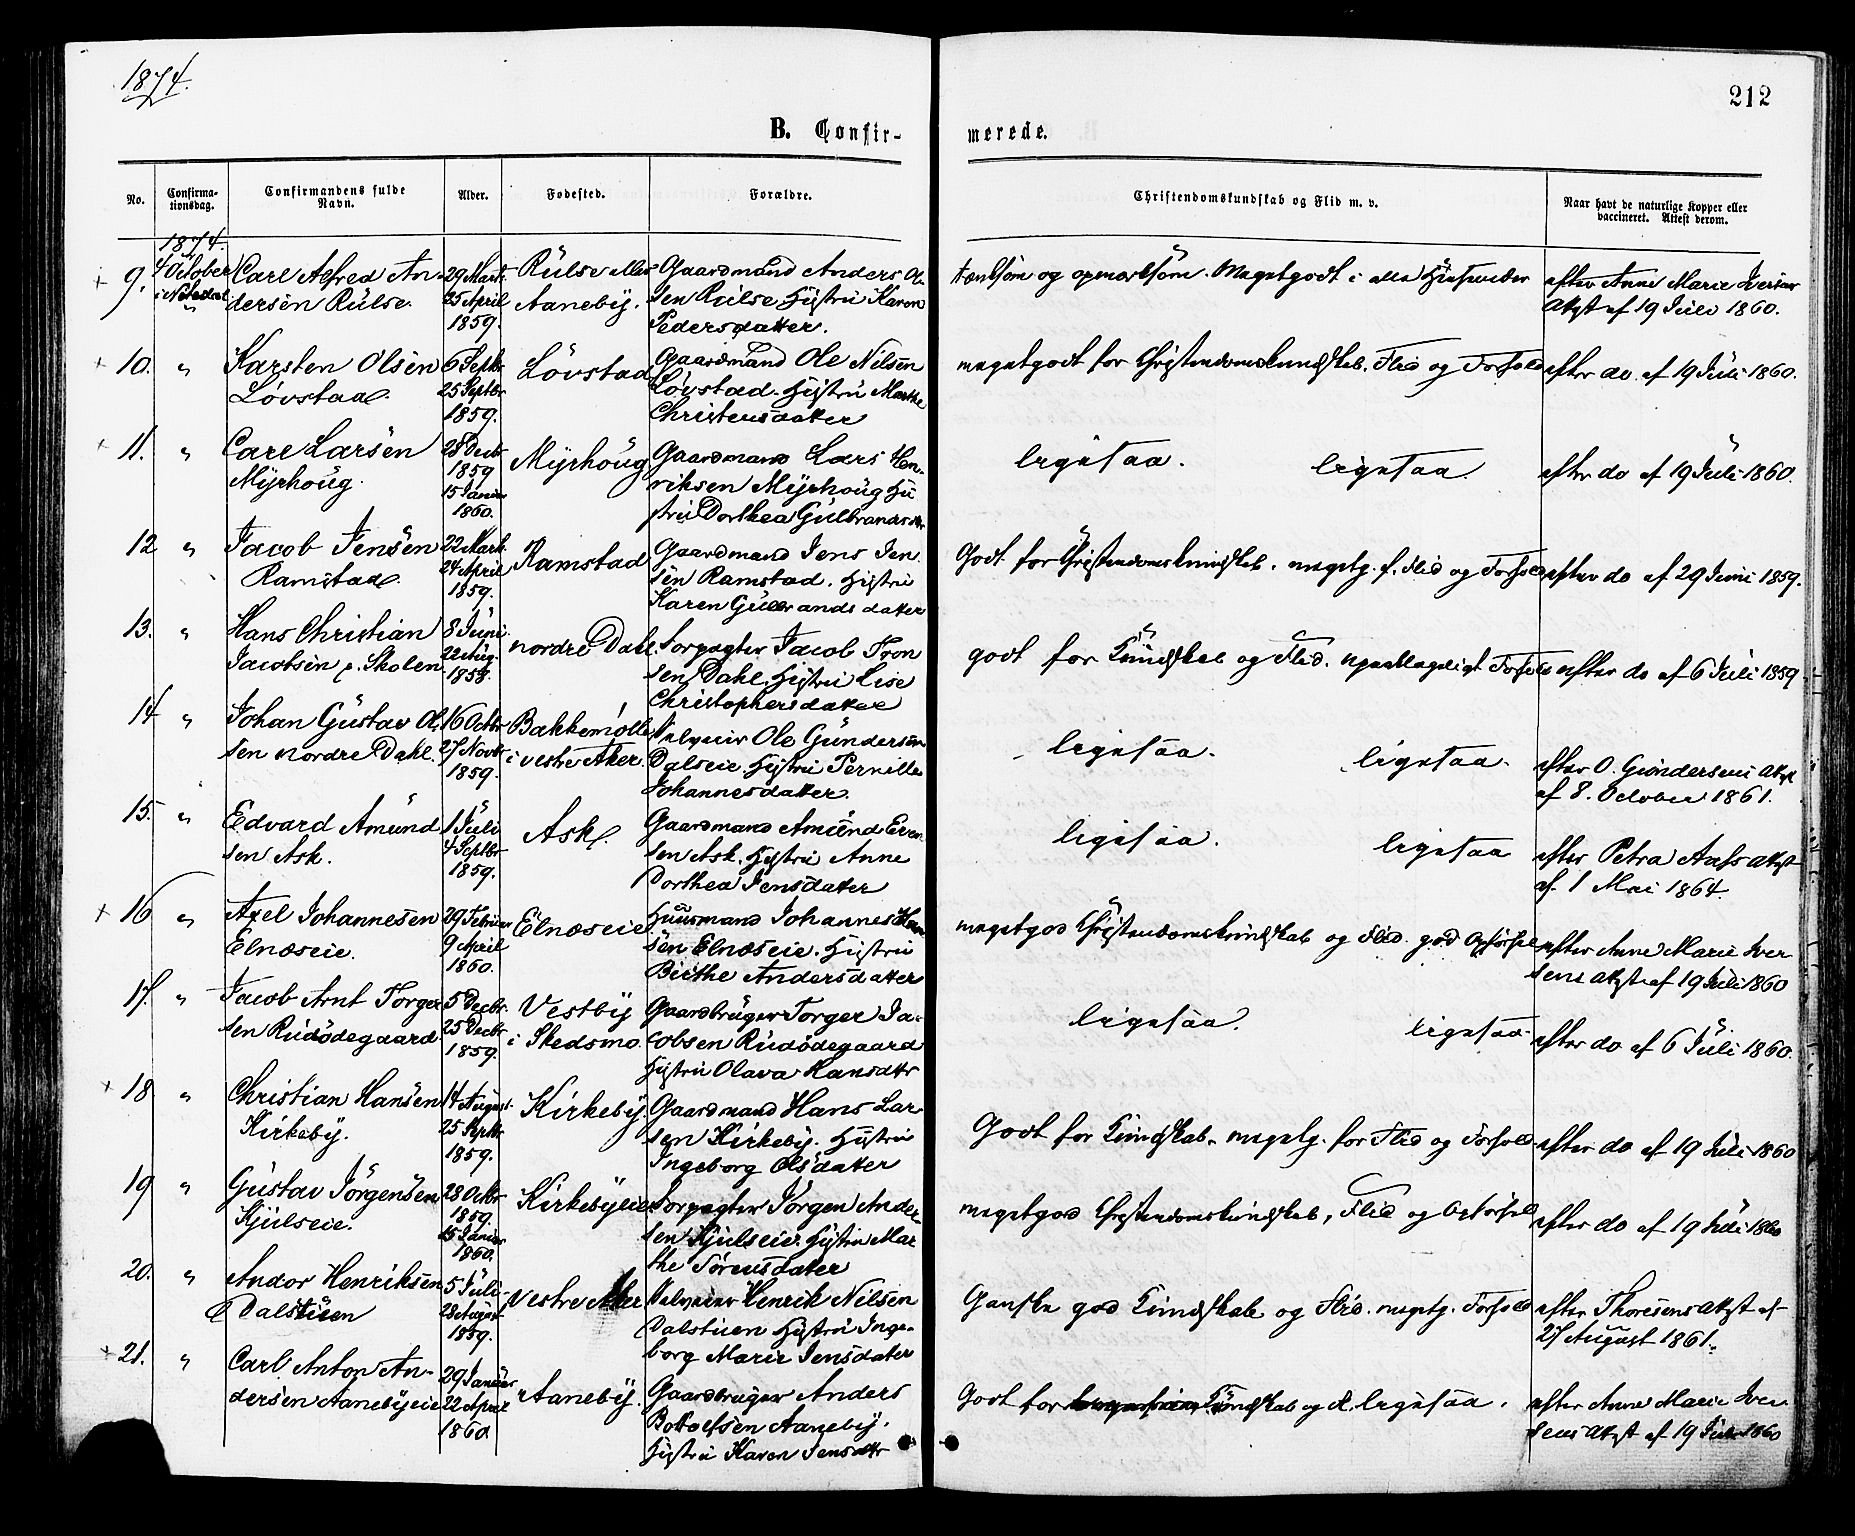 1874.
212
B. Confir-
merede.
No.
Confirma-
tionsdag.
Confirmandens fulde
Navn.
Alder.
Fødested.
Forældre.
Christendomskundskab og Flid m. v.
Naar havt de naturlige Kopper eller
vaccineret. Attest derom.
1874.
9. 4 October Carl Alfred An-
dersen Rülse.
29 Marts
25 April
1859.
Rülse eller
Aanebÿ.
Gaardmand Anders Ol
sen Rülse, Hüstrü Karen
Pedersdatter.
og opmærksom. Megetgodt i alle Hensender
efter Anne Marie Iversens
Attst af 19 Jüli 1860.
10. " Karsten Olsen
Løvstad.
6 Septbr
25 Septbr
1859.
Løvstad
Gaardmand Ole Nilsen
Løvstad. Hüstrü Marthe
Christensdatter
megetgodt for Christendomskundskab, Flid og Forhold
efter do. af 19 Jüli 1860.
11. " Carl Larsen
Mÿrhoüg.
28 Decbr
1859
15 Janüar
1860.
Mÿrhoüg
Gaardmand Lars Hen-
riksen Mÿrhoüg Hü
strü Dorthea Gülbrandsdtr
ligesaa. ligesaa.
efter do af 19 Jüli 1860.
12 " Jacob Jensen
Ramstad.
22 Marts
24 April
1859.
Ramstad
Gaardmand Jens Jen
sen Ramstad. Hüstrü
Karen Güllbrandsdatter
Godt for Christendomskundskab. megetg. f. Flid og Forhold
efter do af 29 Juni 1859.
13. " Hans Christian
Jacobsen p. Skolen.
8 Jüni
22 Aüg.
1858.
nordre Dahl
Forpagter Jacob Tron
sen Dahl, Hüstrü Lise
Christophersdatter
godt for Kündskab og Flid. upaaklageligt Forhold
efter do af 6 Jüli 1859
14 " Johan Güstav Ol
sen nordre Dahl.
16 Octbr
27 Novbr
1859.
Bakkemølle
i vestre Aker.
Selveier Ole Gündersen
Dalseie, Hüstrü Pernille
Johannesdatter.
ligesaa. ligesaa.
efter O. Gündersens Attst
af 8. October 1861.
15. " Edvard Amünd
sen Ask.
1 Jüli
4 Septbr
1859.
Ask.
Gaardmand Amünd Even
sen Ask, Hüstrü Anne
Dorthea Jensdatter
ligesaa. ligesaa
efter Petra Aass Attst
af 1 Mai 1864.
16 " Axel Johannesen
Elnæseie.
29 Februar
9 April
1860.
Elnæseie
Hüusmand Johannes Han
sen Elnæseie. Hüstrü
Birthe Andersdatter
megetgod Christendomskundskab og Flid. god Opførsel
efter Anne Marie Iver
sens Attst af 19 Jüli 1860
17. " Jacob Arnt Torger
sen Rüdødegaard.
5 Decbr
25 Decbr
1859.
Vestbÿ
i Skedsmo.
Gaardbrüger Torger Ja-
cobsen Rüdødegaard
Hüstrü Olava Hansdtr
ligesaa. ligesaa.
efter do af 6 Jüli 1860.
18 " Christian Hansen
Kirkebÿ.
14 August
25 Septbr
1859.
Kirkebÿ.
Gaardmand Hans Lar-
sen Kirkebÿ. Hüstrü
Ingeborg Olsdatter
Godt for Kündskab. megetg. for Flid og Forhold.
efter do af 19 Jüli 1860
19 " Güstav Jørgensen
Kjülseie.
28 Octbr
1859.
15 Janüar
1860.
Kirkebÿeie
Forpagter Jørgen Ander
sen Kjülseie. Hüstrü Mar
the Sørensdatter
megetgod Christendomskundskab, Flid og Opførsel
efter do af 19 Jüli 1860
20. " Andor Henriksen
Dalstüen
5 Jüli
28 August
1859.
Vestre Aker
Selveier Henrik Nilsen
Dalstüen Hüstrü Inge-
borg Marie Jensdatter
Ganske god Kündskab og Flid. megetg. Forhold
efter Thoresens Attst af
27 August 1861.
21. " Carl Anton An-
dersen Aanebÿeie
29 Janüar
22 April
1860
Aanebÿ.
Gaardbrüger Anders
Bottolfsen Aanebÿ.
Hüstrü Karen Jensdtr
Godt for Kündskab og ligesaa.
efter Anne Marie Iver
sens Attst af 19 Jüli 1860